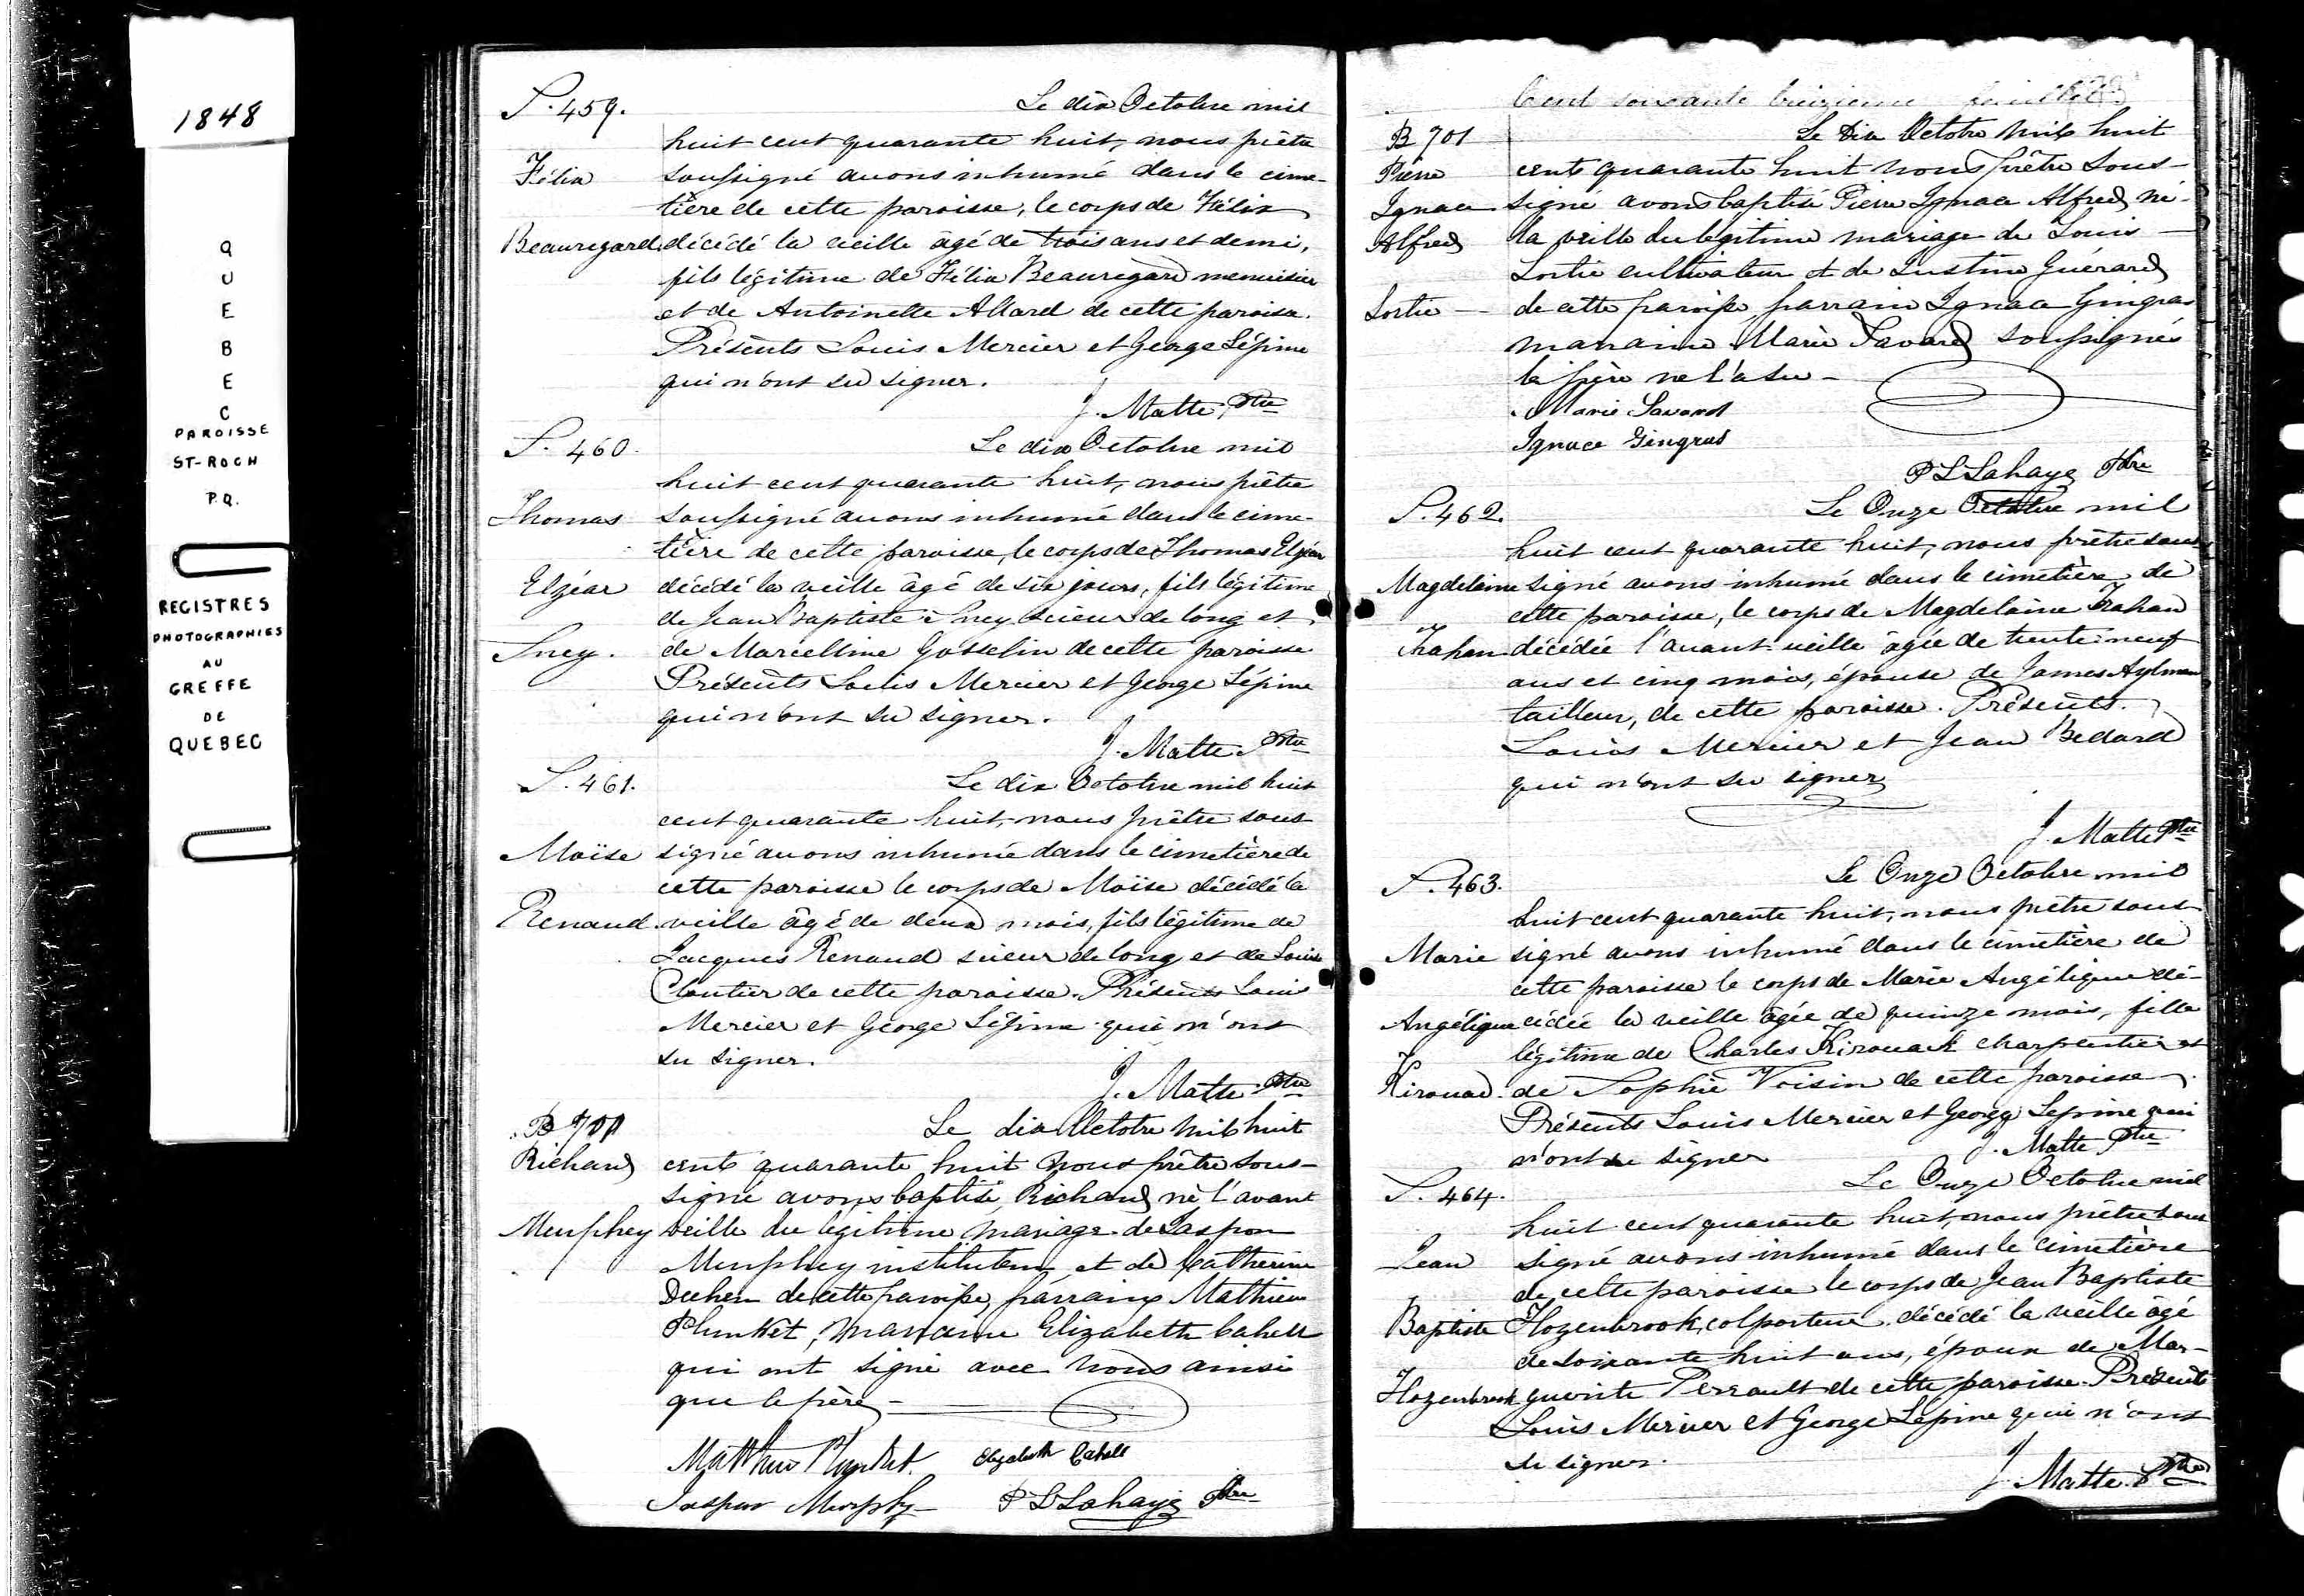 1848
QUEBEC
PAROISSE
ST-ROCH
P.Q.
REGISTRES
PHOTOGRAPHIES
AU
GREFFE
DE
QUEBEC
S. 459.
Le dix Octobre mil
huit cent quarante huit, nous prêtre
Félix
soussigné avons inhumé dans le cime-
tière de cette paroisse, le corps de Félix
Beauregard
décédé la veille âgé de trois ans et demi,
fils légitime de Félix Beauregard menuisier
et de Antoinette Allard de cette paroisse.
Présents Louis Mercier et George Lépine
qui n'ont su signer.
J. Matte Ptre
S. 460.
Le dix Octobre mil
huit cent quarante huit, nous prêtre
Thomas
soussigné avons inhumé dans le cime-
tière de cette paroisse, le corps de Thomas Elzéar
Elzéar
décédé la veille âgé de six jours, fils légitime
de Jean Baptiste scieur de long et
de Marcelline Gosselin de cette paroisse
Présents Louis Mercier et George Lépine
qui n'ont su signer.
J. Matte Ptre
S. 461.
Le dix Octobre mil huit
cent quarante huit, nous prêtre sous
Moïse
signé avons inhumé dans le cimetière de
cette paroisse le corps de Moïse décédé la
Renaud
veille âgé de deux mois, fils légitime de
Jacques Renaud scieur de long et de Louise
Cloutier de cette paroisse. Présents Louis
Mercier et George Lépine qui n'ont
su signer.
J. Matte Ptre
B 700
Le dix Octobre mil huit
Richard
cent quarante huit nous prêtre sous-
signé avons baptisé Richard né l'avant
Murphey
veille du légitime mariage de Jaspar
Murphey instituteur et de Catherine
de cette paroisse, parrain Mathieu
Plunket, marraine Elizabeth Cahell
qui ont signé avec nous ainsi
que le père -
Matthew Plunket. Elizabeth Cahell
Jaspar Murphy P L Lahaye Ptre
Cent soixante treizieme feuillet
B 701
Le Dix Octobre mil huit
Pierre
cent quarante huit nous prêtre sous-
Ignace
signé avons baptisé Pierre Ignace Alfred né
Alfred
la veille du légitime mariage de Louis
Lortie cultivateur et de Justine Guérard
Lortie
de cette paroisse parrain Ignace Gingras
marraine Marie Savard soussignés
le père ne l'a su -
Marie Savard
Ignace Gingras
P L Lahaye Ptre
S. 462.
Le Onze Octobre mil
huit cent quarante huit, nous prêtre sous
Magdelaine
signé avons inhumé dans le cimetière de
cette paroisse, le corps de Magdelaine Trahan
Trahan
décédée l'avant-veille âgée de trente neuf
ans et cinq mois, épouse de James Aylmer
tailleur, de cette paroisse. Présents
Louis Mercier et Jean Bedard
qui n'ont su signer
J. Matte Ptre
S. 463.
Le Onze Octobre mil
huit cent quarante huit, nous prêtre sous
Marie
signé avons inhumé dans le cimetière de
cette paroisse le corps de Marie Angélique dé-
Angélique
cédée la veille âgée de quinze mois, fille
légitime de Charles Kirouack charpentier et
Kirouac
de Sophie Voisin de cette paroisse
Présents Louis Mercier et George Lepine qui
n'ont su signer
J. Matte Ptre
S. 464.
Le Onze Octobre mil
huit cent quarante huit, nous prêtre sous
Jean
signé avons inhumé dans le cimetière
de cette paroisse le corps de Jean Baptiste
Baptiste
Hozenbrook, colporteur décédé la veille âgé
de soixante huit ans, époux de Mar-
Hozenbrook
guerite Perrault de cette paroisse. Présents
Louis Mercier et George Lépine qui n'ont
su signer.
J. Matte Ptre